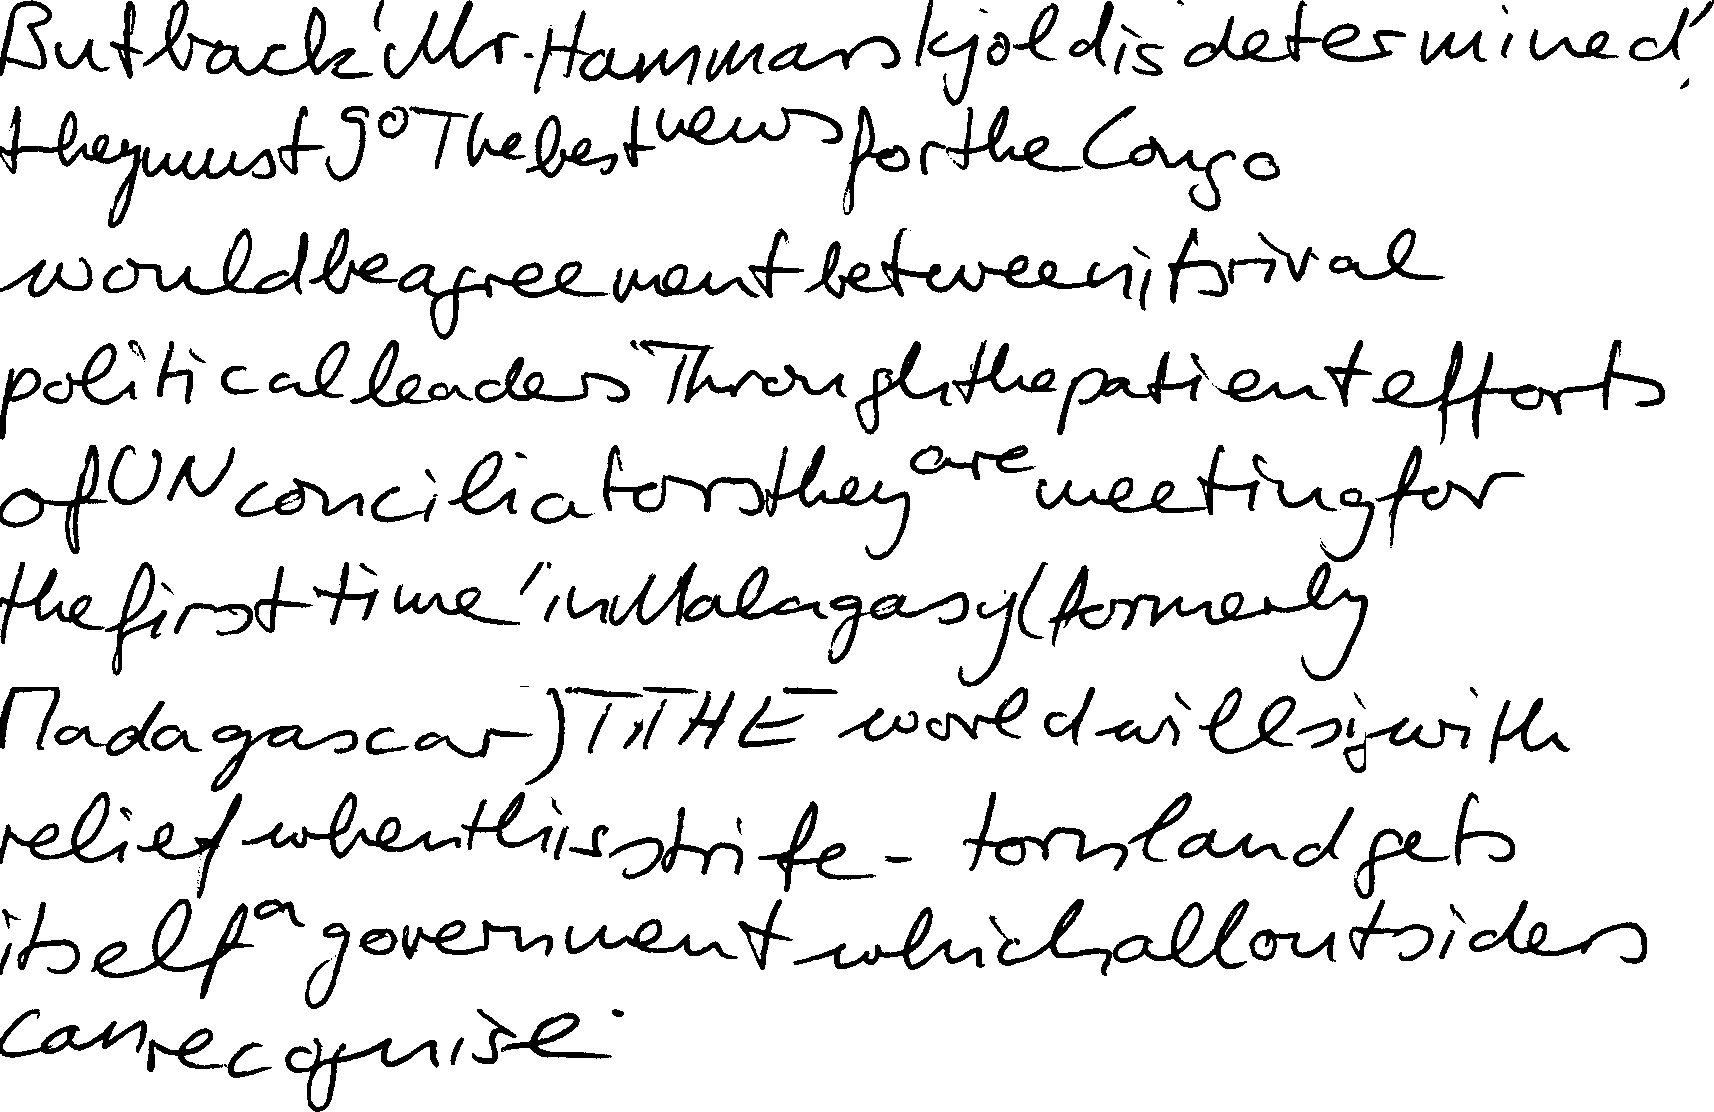 But back 'Mr. Hammarskjold is determined',
they must go The best news for the Congo
would be agreement between its rival
political leaders Through the patient efforts
of UN conciliators they are meeting for
the first time' in Malagasy (formerly
Madagascar) THE world will with
relief when this strife - torn land gets
itself a government which all outsiders
can recognise.